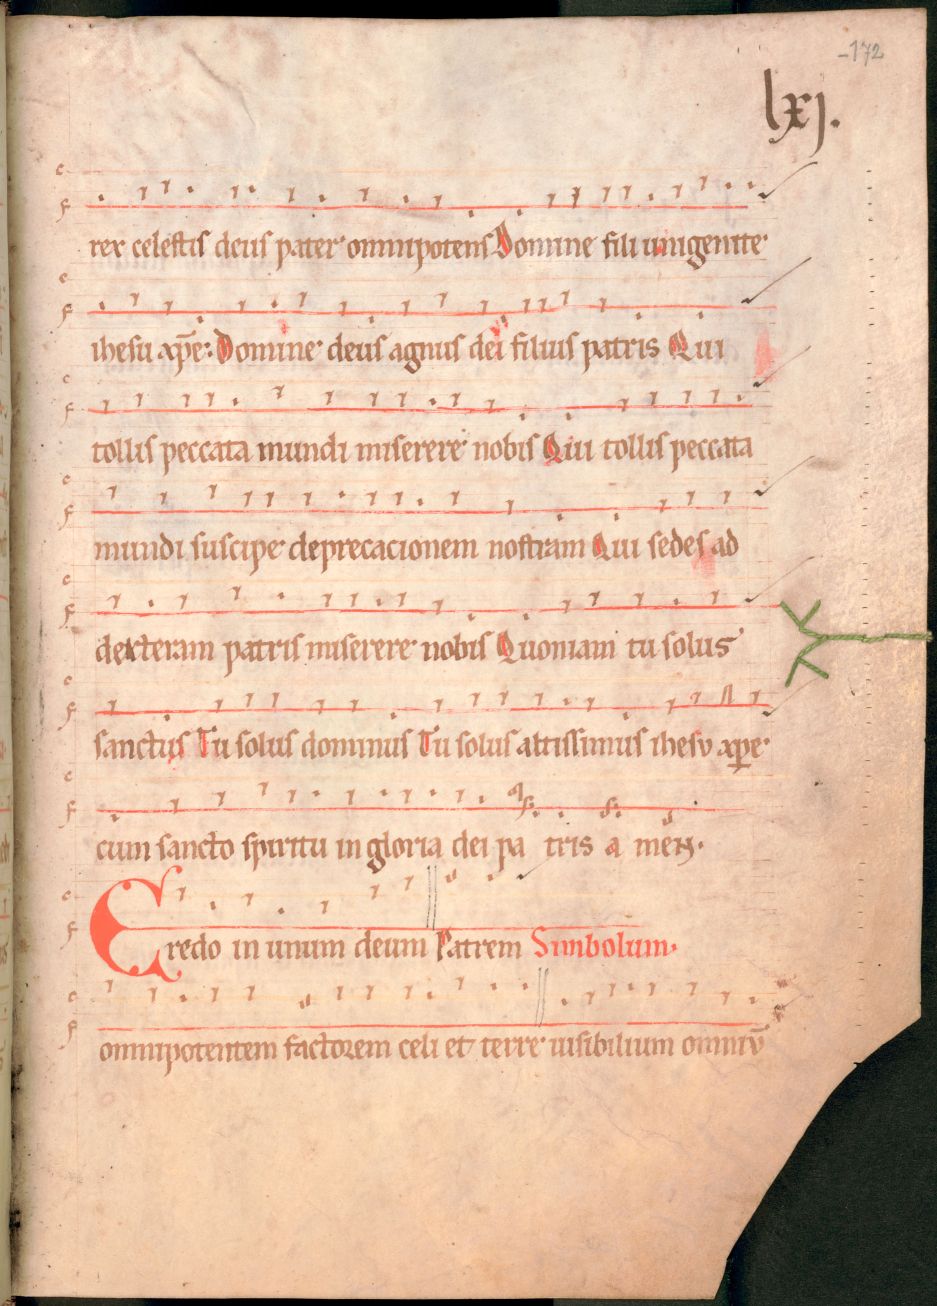 -172
lxj.
rex celestis deus pater omnipotens Domine fili unigenite
ihesu xp̄e. Domine deus agnus dei filius patris Qui
tollis peccata mundi miserere nobis Qui tollis peccata
mundi suscipe deprecacionem nostram Qui sedes ad
dexteram patris miserere nobis Quoniam tu solus
sanctus Tu solus dominus Tu solus altissimus ihesv xp̄e
cum sancto spiritu in gloria dei pa tris a men.
Credo in unum deum Patrem Simbolum.
omnipotentem factorem celi et terre uisibilium omniū